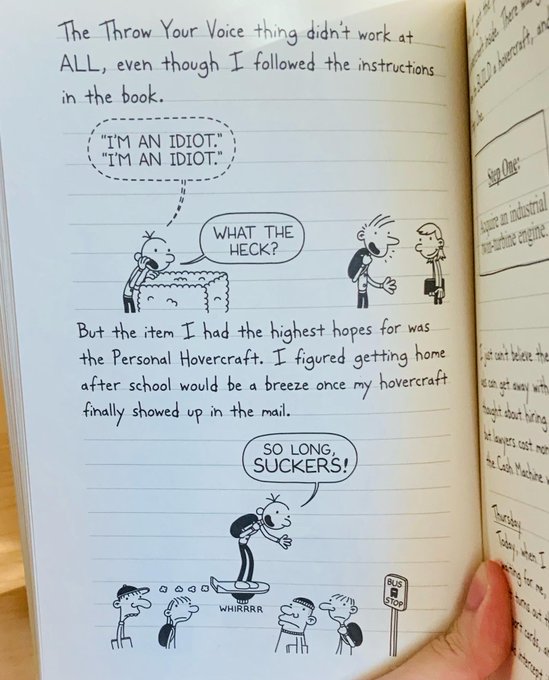 The Throw Your Voice thing didn't work at
ALL, even though I followed the instructions
in the book.
"I'M AN IDIOT."
"I'M AN IDIOT."
WHAT THE
HECK?
But the item I had the highest hopes for was
the Personal Hovercraft. I figured getting home
after school would be a breeze once my hovercraft
finally showed up in the mail.
SO LONG,
SUCKERS!
WHIRRRR
BUS
STOP
BUILD a hovercraft, and
Step One:
Acquire an industrial
twin-turbine engine.
I just can't believe the
can get away with
thought about hiring
but lawyers cost mon
the Cash Machine
Thursday
Today, when I
for me,
turns out
cards,
intercept